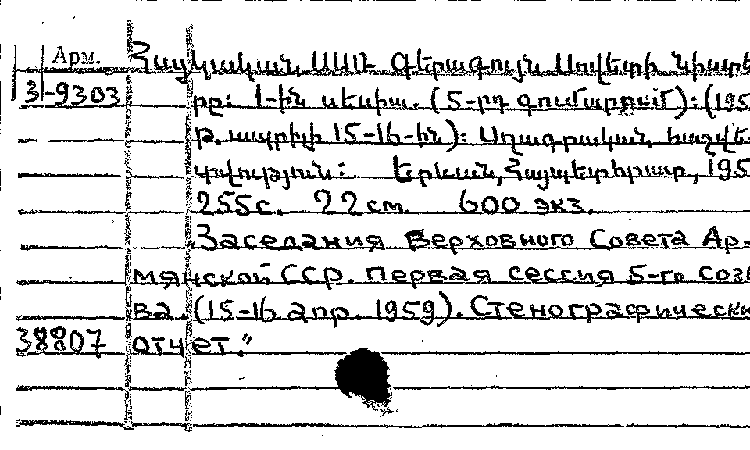 Арм. Հայկական ՍՍՌ Գերագույն Սովետի նիստե
3-9303 րը: 1-ին սեսիա. (5-րդ գումարում): (195
թ. ապրիլի 15-16-ին): Սղագրական հաշվե
տվություն: Երևան, Հայպետհրատ, 195
255с. 22см. 600 экз.
Заседания Верховного Совета Ар-
мянской ССР. Первая сессия 5-го созы
ва. (15-16 апр. 1959). Стенографически
38807 отчет."